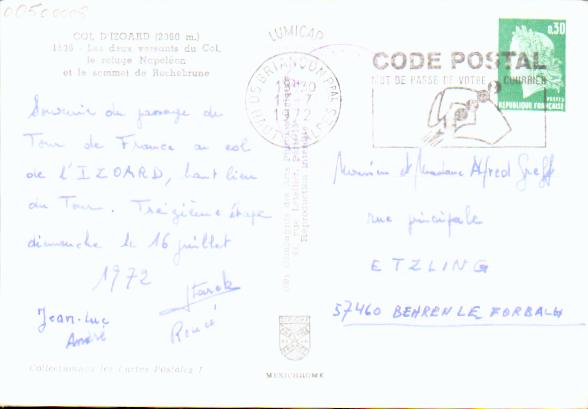 00500008
COL D'IZOARD (2360 m.)
1636 - Les deux versants du Col,
le refuge Napoléon
et le sommet de Rochebrune
LUMICAP
05 BRIANCON PPAL
HAUTES ALPES
17-7
1972
CODE POSTAL
MOT DE PASSE DE VOTRE COURRIER
0,30
POSTES
REPUBLIQUE FRANÇAISE
Souvenir du passage du
Tour de France au col
de l'IZOARD, haut lieu
du Tour. Treizième étape
dimanche le 16 juillet
1972
Starck
Jean-Luc
René
André
Monsieur et Madame Alfred Greff
rue principale
ETZLING
57460 BEHREN LE FORBACH
Collectionnez les Cartes Postales !
MEXICHROME